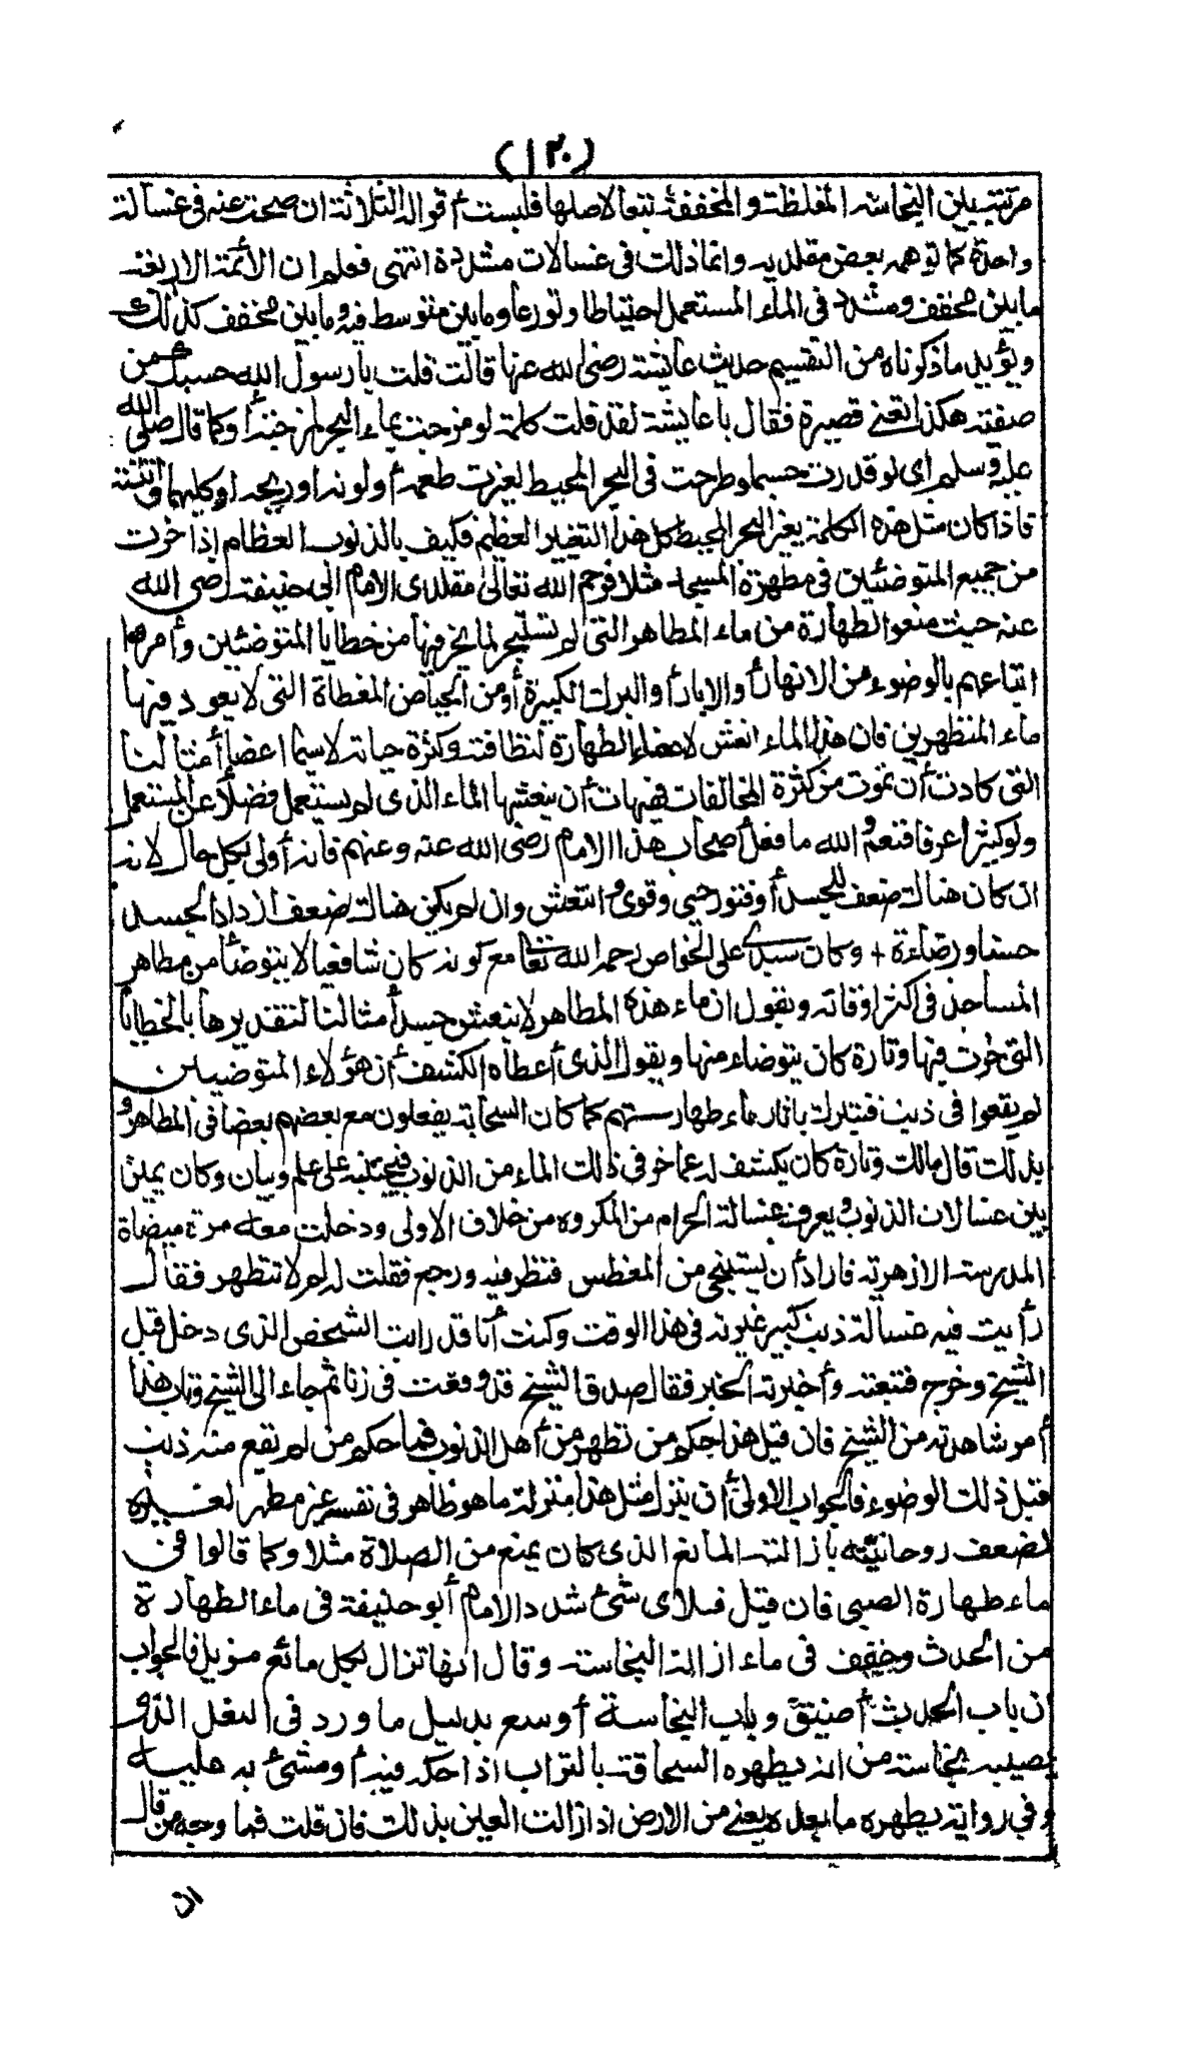 (١٢٠)
مرتبة بين النجاسة المغلظة والمخففة تبعا لاصلها فليست أقواله الثلاثة ان صحت عنه في غسالة
واحدة كما توهمه بعض مقلديه وانما ذلك في غسالات متعددة انتهى فعلم ان الأئمة الاربعة
ما بين مخفف ومشدد في الماء المستعمل احتياطا وتورعا وما بين متوسط فيه وما بين مخفف كذلك
ويؤيد ما ذكرناه من التقسيم حديث عائشة رضى الله عنها قالت قلت يا رسول الله حسبك من
صفية هكذا تعني قصيرة فقال يا عائشة لقد قلت كلمة لو مزجت بماء البحر لمزجته أو كما قال صلى الله
عليه وسلم أى لو قدرت جسما وطرحت في البحر المحيط لغيرت طعمه أو لونه او ريحه او كليهما وأنتنته
فاذا كان مثل هذه الكلمة يغير البحر المحيط كل هذا التغيير العظيم فكيف بالذنوب العظام إذا خرت
من جميع المتوضئين في مطهرة المسجد مثلا فرحم الله تعالى مقلدى الامام ابى حنيفة رضى الله
عنه حيث منعوا الطهارة من ماء المطاهر التى لم تستبحر لما يخر فيها من خطايا المتوضئين وأمروا
اتباعهم بالوضوء من الانهار أو الابار أو البرك الكبيرة أو من الحياض المغطاة التى لا يعود فيها
ماء المتطهرين فان هذا الماء انعش لاعضاء الطهارة لنظافته وكثرة حياته لاسيما اعضاء أمثالنا
التى كادت أن تموت من كثرة المخالفات فهيهات أن ينعشها الماء الذى لم يستعمل فضلا عن المستعمل
ولو كثيرا عرفا فنعم والله ما فعل أصحاب هذا الامام رضى الله عنه وعنهم فانه أولى بكل حال لانه
ان كان هناك ضعف للجسد أو فتور حيى وقوى وانتعش وان لم يكن هناك ضعف ازداد الجسد
حسنا ورضاءة + وكان سيدى على الخواص رحمه الله تعالى مع كونه كان شافعيا لا يتوضأ من مطاهر
المساجد في اكثر اوقاته ويقول ان ماء هذه المطاهر لا ينعش جسد أمثالنا لتقديرها بالخطايا
التى خرت فيها وتارة كان يتوضاء منها ويقول الذى أعطاه الكشف أن هؤلاء المتوضيين
لم يقعوا في ذنب فيتبرك بآثار ماء طهارستهم كما كان السحابة يفعلون مع بعضهم بعضا في المطاهر و
بذلك قال مالك وتارة كان يكشف له عما خر في ذلك الماء من الذنوب فيجتنبه على علم وبيان وكان يميز
بين غسالات الذنوب ويعرف غسالة الحرام من المكروه من خلاف الاولى ودخلت معه مرة ميضاة
المدرسة الازهرية فاراد أن يستنجى من المغطس فنظر فيه ورجع فقلت له لم لا تتطهر فقال
رأيت فيه غسالة ذنب كبير غيرته في هذا الوقت وكنت أنا قد رايت الشخص الذى دخل قبل
الشيخ وخرج فتبعته وأخبرته الخبر فقال صدق الشيخ قد وقعت في زنا ثم جاء الى الشيخ وتاب هذا
أمر شاهدته من الشيخ فان قيل هذا حكم من تطهر من أهل الذنوب فما حكم من لم يقع منه ذنب
قبل ذلك الوضوء فالجواب الاولى أن ينزل مثل هذا منزلة ما هو طاهر في نفسه غير مطهر لغيره
لضعف روحانيته بازالته المانع الذى كان يمنع من الصلاة مثلا وكما قالوا في
ماء طهارة الصبى فان قيل فلاى شئ شدد الامام أبو حنيفة في ماء الطهارة
من الحدث وخفف في ماء ازالة النجاسة وقال انها تزال بكل مائع مزيل فالجواب
ان باب الحديث أضيق وباب النجاسة أوسع بدليل ما ورد في النعل الذى
يصيبه نجاسة من انه يطهره السحاقة بالتراب اذا حكه فيه أو مشئ به عليه
وفي رواية يطهره ما بعده يعنى من الارض اذا زالت العين بذلك فان قلت فما وجه من قال
ان